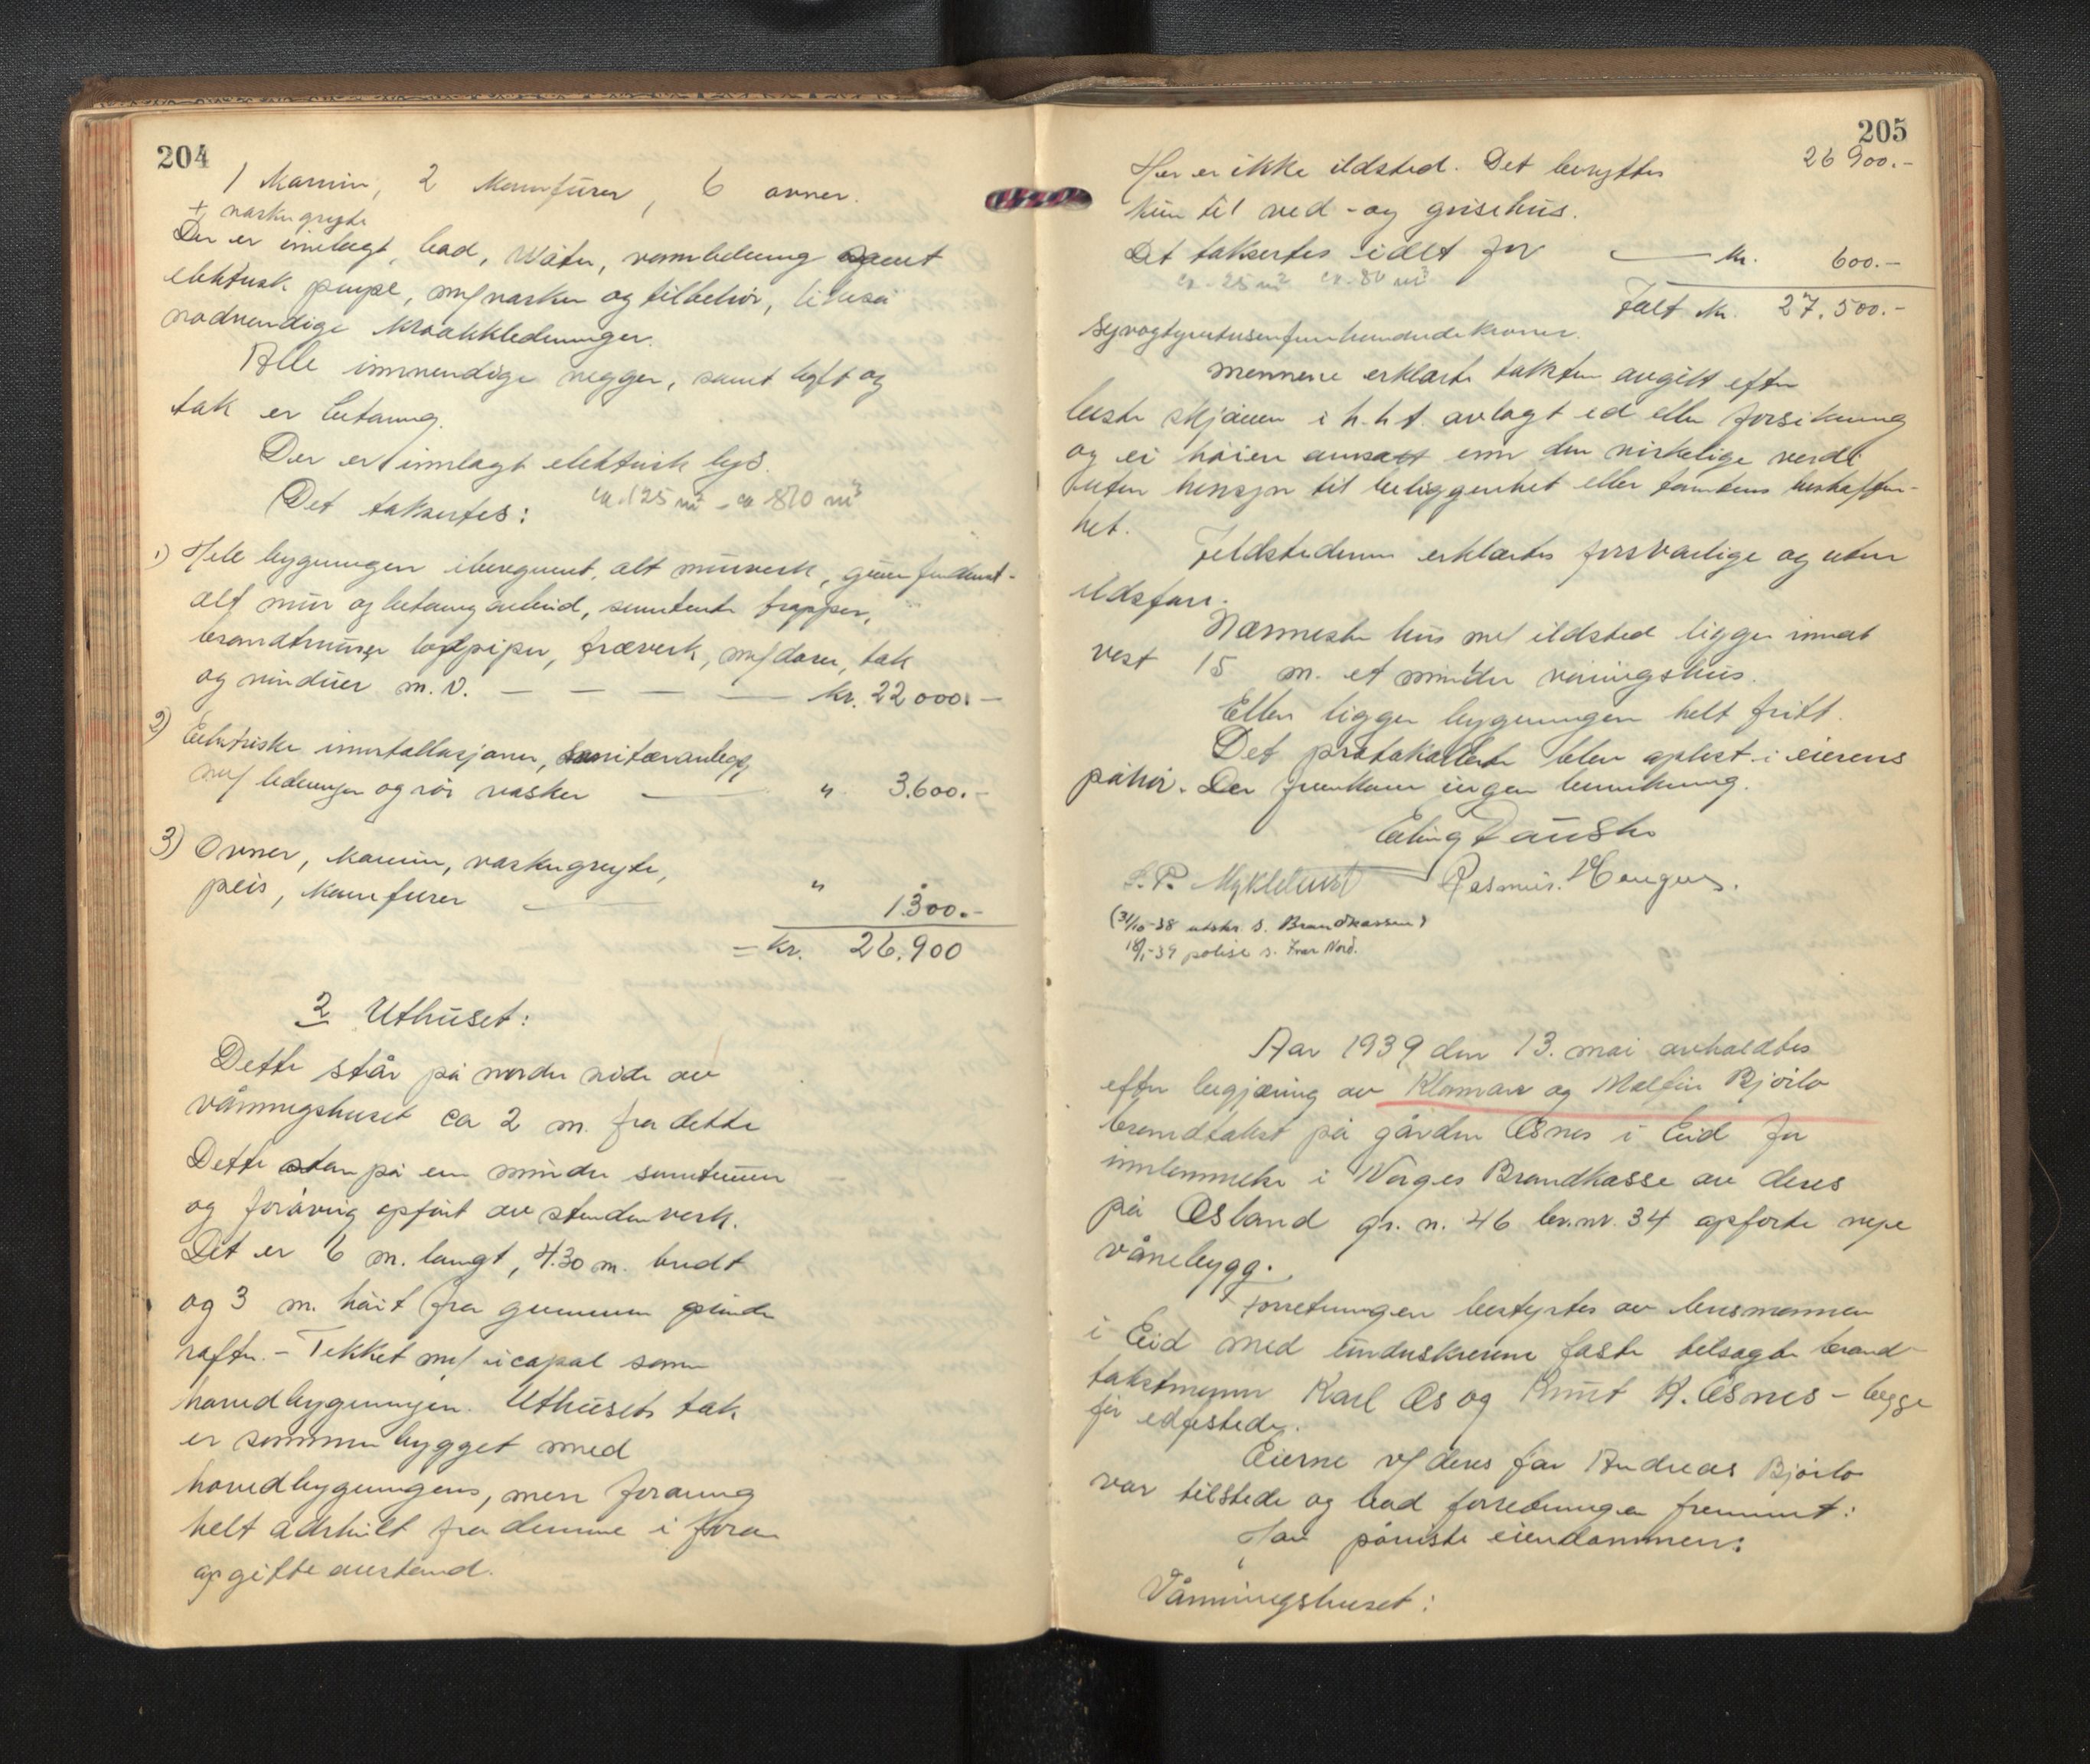 204
1 kamin, 2 komfürer, 6 ovner.
+ vaskegryte
Der er innlagt, bad, Water, vannledning samt
elektrisk pumpe, m/ vasker og tilbehör, likeså
nødvendige kloakkledninger.
Alle innvendige vegger, samt loft og
tak er betong.
Der er innlagt elektrisk lys.
Det taksertes: ca. 125 m² - ca 810 m³
1) Hele bygningen iberegnet, alt murverk, grunn fundament-
alt mur og betong arbeid, sementerte trapper,
brandmurer loftpiper, treverk, m/ dører, tak
og vinduer m.v. — — — — kr. 22000.-
2) Elektriske innstallasjoner, sanitæranlegg
m/ ledninger og rör vasker — " 3.600.-
3) Ovner, kamin, vaskegryte,
peis, komfurer — " 1300.-
= kr. 26.900
2 Uthuset:
Dette står på nordre side av
våningshuset ca 2 m. fra dette
Dette står på en mindre sementmur
og forövrig opfört av stenderverk.
Det er 6 m. langt, 4.30 m. bredt
og 3 m. höit fra grunnen under
rafter. - Tekket m/ icopal som
hovedbygningen. Uthusets tak
er sammenbygget med
hovedbygningens, men forövrig
helt adskilt fra denne i foran
opgitte avstand.
205
Her er ikke ildsted. Det benyttes 26900.-
kun til ved- og grisehus.
Det taksertes i alt for — kr. 600.-
ca. 25 m² ca. 80 m³
Ialt kr. 27.500.-
Syvogtyvetusenfemhundrede kroner.
Mennene erklærte taksten avgitt efter
beste skjönn i h.h.t. avlagt ed eller forsikring
og ei höiere ansatt enn den virkelige verdi
uten hensyn til beliggenhet eller tomtens beskaffen-
het.
Ildstedene erklærtes forsvarlige og uten
ildsfare.
Nærmeste hus m/ ildsted ligger innat
vest 15 m. et mindre våningshus.
Ellers ligger bygningen helt fritt.
Det protokollerte blev oplest i eierens
påhör. Der fremkom ingen bemerkning.
Erling Dauske
E. P. Myklebust Rasmus. Haugen.
(31/10-38 utskr. s. Brandkassen)
18/1-39 polise s. Ivar Nord.
Aar 1939 den 13. mai avholdtes
efter begjæring av Klomar og Malfin Bjørlo
brandtakst på gården Øsnes i Eid for
innlemmelse i Norges Brandkasse av deres
på Øsland gr. n. 46 br.nr. 34 opførte nye
vånebygg.
Forretningen bestyrtes av lensmannen
i Eid med underskrevne faste tilsagte brand-
takstmenn Karl Øs og Knut K. Øsnes - begge
för edfestede.
Eierne v/ deres far Andreas Bjørlo
var tilstede og bad forretningen fremmet:
Har påviste eiendommen:
Våningshuset: